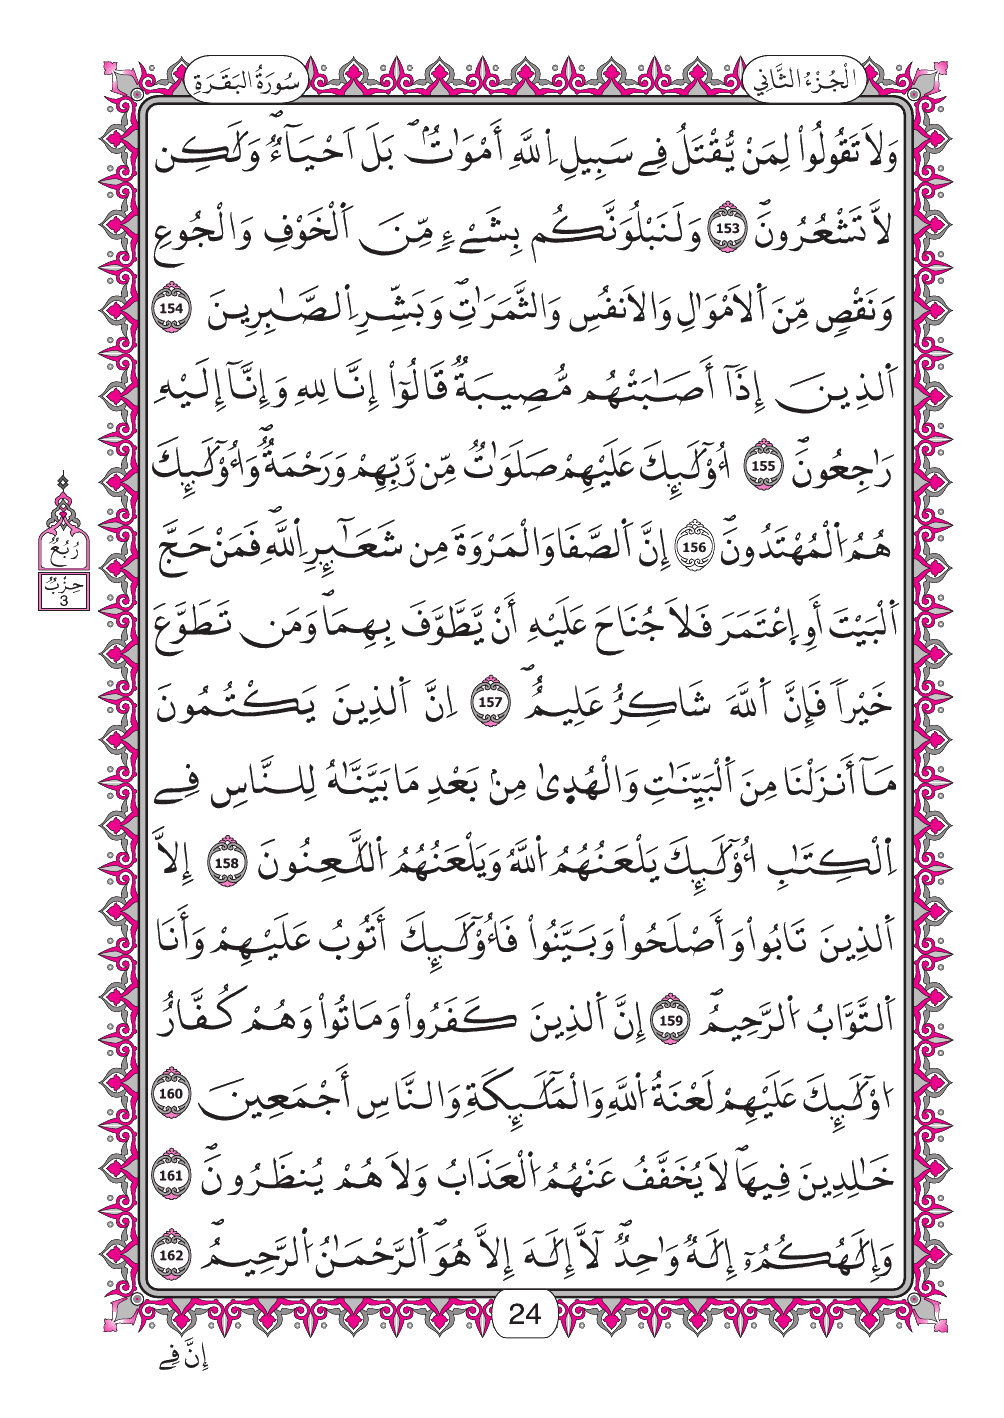 الْجُزْءُ الثَّانِي
سُورَةُ الْبَقَرَةِ
وَلَا تَقُولُواْ لِمَنْ يُّقْتَلُ فِے سَبِيلِ اِ۬للَّهِ أَمْوَٰتُۢ بَلَ اَحْيَآءٞ وَلَٰكِن
لَّا تَشْعُرُونَۖ 153 وَلَنَبْلُوَنَّكُم بِشَےْءٖ مِّنَ اَ۬لْخَوْفِ وَالْجُوعِ
وَنَقْصٖ مِّنَ اَ۬لَامْوَٰلِ وَالَانفُسِ وَالثَّمَرَٰتِۖ وَبَشِّرِ اِ۬لصَّٰبِرِينَ 154
اَ۬لذِينَ إِذَآ أَصَٰبَتْهُم مُّصِيبَةٞ قَالُوٓاْ إِنَّا لِلهِ وَإِنَّآ إِلَيْهِ
رَٰجِعُونَۖ 155 أُوْلَٰٓئِكَ عَلَيْهِمْ صَلَوَٰتٞ مِّن رَّبِّهِمْ وَرَحْمَةٞۖ وَأُوْلَٰٓئِكَ
هُمُ اُ۬لْمُهْتَدُونَۖ 156 إِنَّ اَ۬لصَّفَا وَالْمَرْوَةَ مِن شَعَٰٓئِرِ اِ۬للَّهِۖ فَمَنْ حَجَّ
اَ۬لْبَيْتَ أَوِ اِ۪عْتَمَرَ فَلَا جُنَاحَ عَلَيْهِ أَنْ يَّطَّوَّفَ بِهِمَاۖ وَمَن تَطَوَّعَ
خَيْراٗ فَإِنَّ اَ۬للَّهَ شَاكِرٌ عَلِيمٌۖ 157 اِنَّ اَ۬لذِينَ يَكْتُمُونَ
مَآ أَنزَلْنَا مِنَ اَ۬لْبَيِّنَٰتِ وَالْهُد۪ىٰ مِنۢ بَعْدِ مَا بَيَّنَّٰهُ لِلنَّاسِ فِے
اِ۬لْكِتَٰبِ أُوْلَٰٓئِكَ يَلْعَنُهُمُ اُ۬للَّهُ وَيَلْعَنُهُمُ اُ۬للَّٰعِنُونَ 158 إِلَّا
اَ۬لذِينَ تَابُواْ وَأَصْلَحُواْ وَبَيَّنُواْ فَأُوْلَٰٓئِكَ أَتُوبُ عَلَيْهِمْ وَأَنَا
اَ۬لتَّوَّابُ اُ۬لرَّحِيمُۖ 159 إِنَّ اَ۬لذِينَ كَفَرُواْ وَمَاتُواْ وَهُمْ كُفَّارٌ
اُوْلَٰٓئِكَ عَلَيْهِمْ لَعْنَةُ اُ۬للَّهِ وَالْمَلَٰٓئِكَةِ وَالنَّاسِ أَجْمَعِينَ 160
خَٰلِدِينَ فِيهَاۖ لَا يُخَفَّفُ عَنْهُمُ اُ۬لْعَذَابُ وَلَا هُمْ يُنظَرُونَۖ 161
وَإِلَٰهُكُمُۥٓ إِلَٰهٞ وَٰحِدٞۖ لَّآ إِلَٰهَ إِلَّا هُوَۖ اَ۬لرَّحْمَٰنُ اُ۬لرَّحِيمُۖ 162
رُبُعُ
حِزْبُ
3
24
إِنَّ فِے